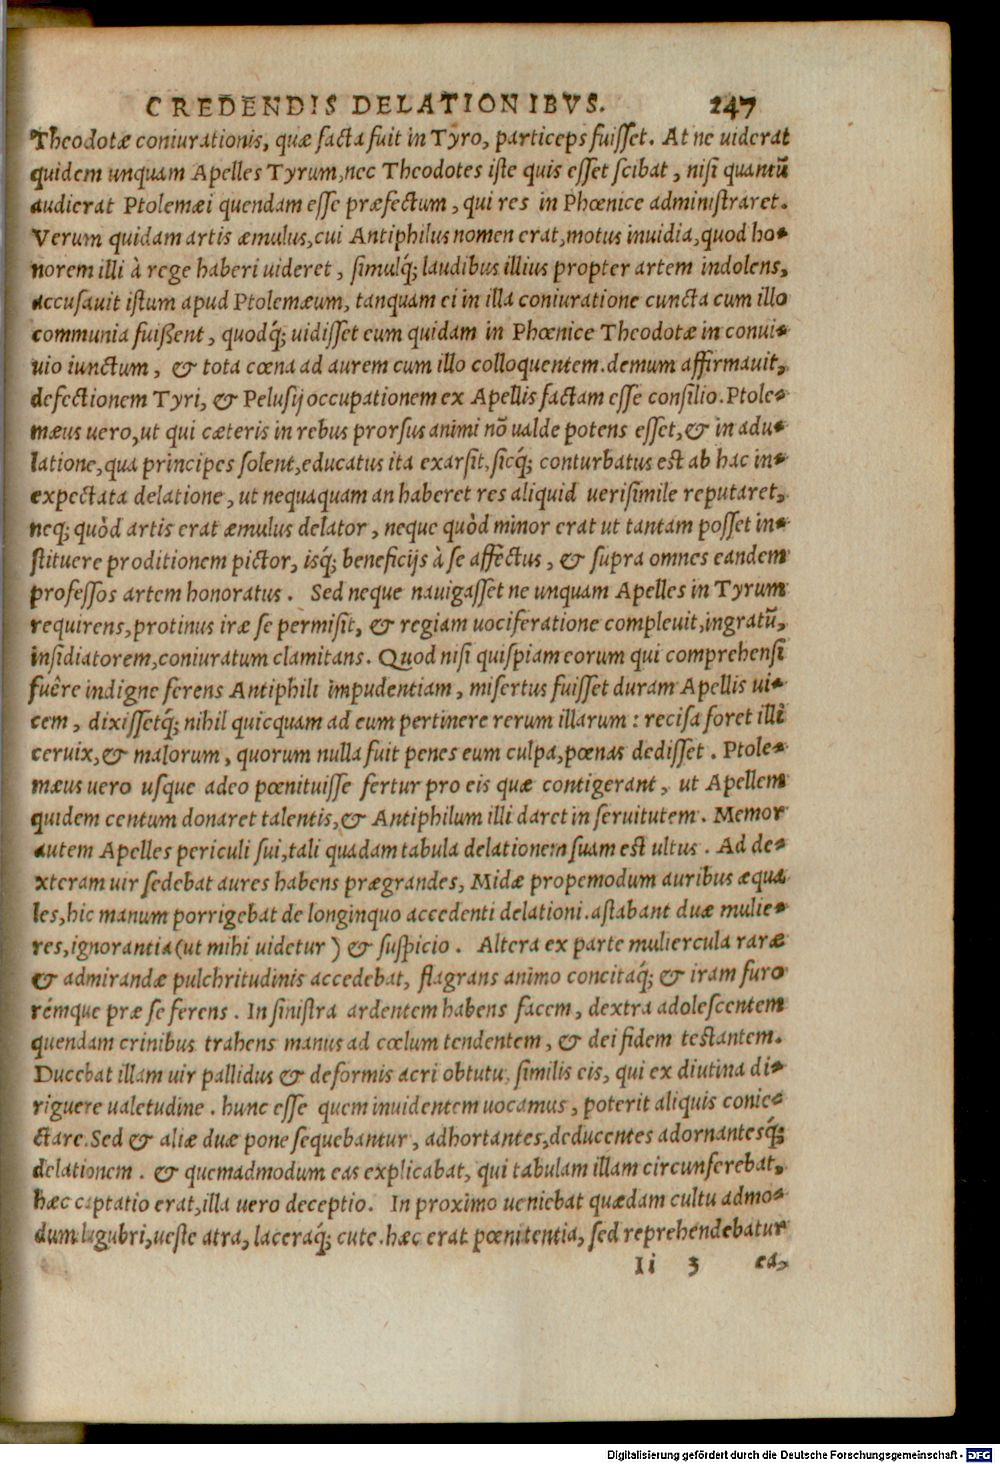 CREDENDIS DELATIONIBVS. 247
Theodotæ coniurationis, quæ facta fuit in Tyro, particeps fuiſſet. At ne uiderat
quidem unquam Apelles Tyrum, nec Theodotes iſte quis eſſet ſcibat, niſi quantũ
audierat Ptolemæi quendam eſſe præfectum, qui res in Phœnice adminiſtraret.
Verum quidam artis æmulus, cui Antiphilus nomen erat, motus inuidia, quod ho-
norem illi à rege haberi uideret, ſimulq́; laudibus illius propter artem indolens,
accuſauit iſtum apud Ptolemæum, tanquam ei in illa coniuratione cuncta cum illo
communia fuißent, quodq́; uidiſſet eum quidam in Phœnice Theodotæ in conui-
uio iunctum, & tota cœna ad aurem cum illo colloquentem. demum affirmauit,
defectionem Tyri, & Pelusij occupationem ex Apellis factam eſſe conſilio. Ptole-
mæus uero, ut qui cæteris in rebus prorſus animi nõ ualde potens eſſet, & in adu-
latione, qua principes ſolent, educatus ita exarſit, ſicq́; conturbatus eſt ab hac in-
expectata delatione, ut nequaquam an haberet res aliquid ueriſimile reputaret,
neq; quòd artis erat æmulus delator, neque quòd minor erat ut tantam poſſet in-
ſtituere proditionem pictor, isq́; beneficijs à ſe affectus, & ſupra omnes eandem
profeſſos artem honoratus. Sed neque nauigaſſet ne unquam Apelles in Tyrum
requirens, protinus iræ ſe permiſit, & regiam uociferatione compleuit, ingratũ,
inſidiatorem, coniuratum clamitans. Quod niſi quiſpiam eorum qui comprehenſi
fuêre indigne ferens Antiphili impudentiam, miſertus fuiſſet duram Apellis ui-
cem, dixiſſetq́; nihil quicquam ad eum pertinere rerum illarum : reciſa foret illi
ceruix, & malorum, quorum nulla fuit penes eum culpa, pœnas dediſſet. Ptole-
mæus uero uſque adeo pœnituiſſe fertur pro eis quæ contigerant, ut Apellem
quidem centum donaret talentis, & Antiphilum illi daret in ſeruitutem. Memor
autem Apelles periculi ſui, tali quadam tabula delationem ſuam eſt ultus. Ad de-
xteram uir ſedebat aures habens prægrandes, Midæ propemodum auribus æqua
les, hic manum porrigebat de longinquo accedenti delationi. aſtabant duæ mulie-
res, ignorantia (ut mihi uidetur) & ſuſpicio. Altera ex parte muliercula raræ
& admirandæ pulchritudinis accedebat, flagrans animo concitaq́; & iram furo
rémque præ ſe ferens. In ſiniſtra ardentem habens facem, dextra adoleſcentem
quendam crinibus trahens manus ad cœlum tendentem, & dei fidem teſtantem.
Ducebat illam uir pallidus & deformis acri obtutu, ſimilis eis, qui ex diutina di-
riguere ualetudine. hunc eſſe quem inuidentem uocamus, poterit aliquis conie-
ctare. Sed & aliæ duæ pone ſequebantur, adhortantes, deducentes adornantesq́;
delationem. & quemadmodum eas explicabat, qui tabulam illam circunferebat,
hæc captatio erat, illa uero deceptio. In proximo ueniebat quædam cultu admo-
dum lugubri, ueſte atra, laceraq́; cute. hæc erat pœnitentia, ſed reprehendebatur
Ii 3 ea,
Digitalisierung gefördert durch die Deutsche Forschungsgemeinschaft - DFG